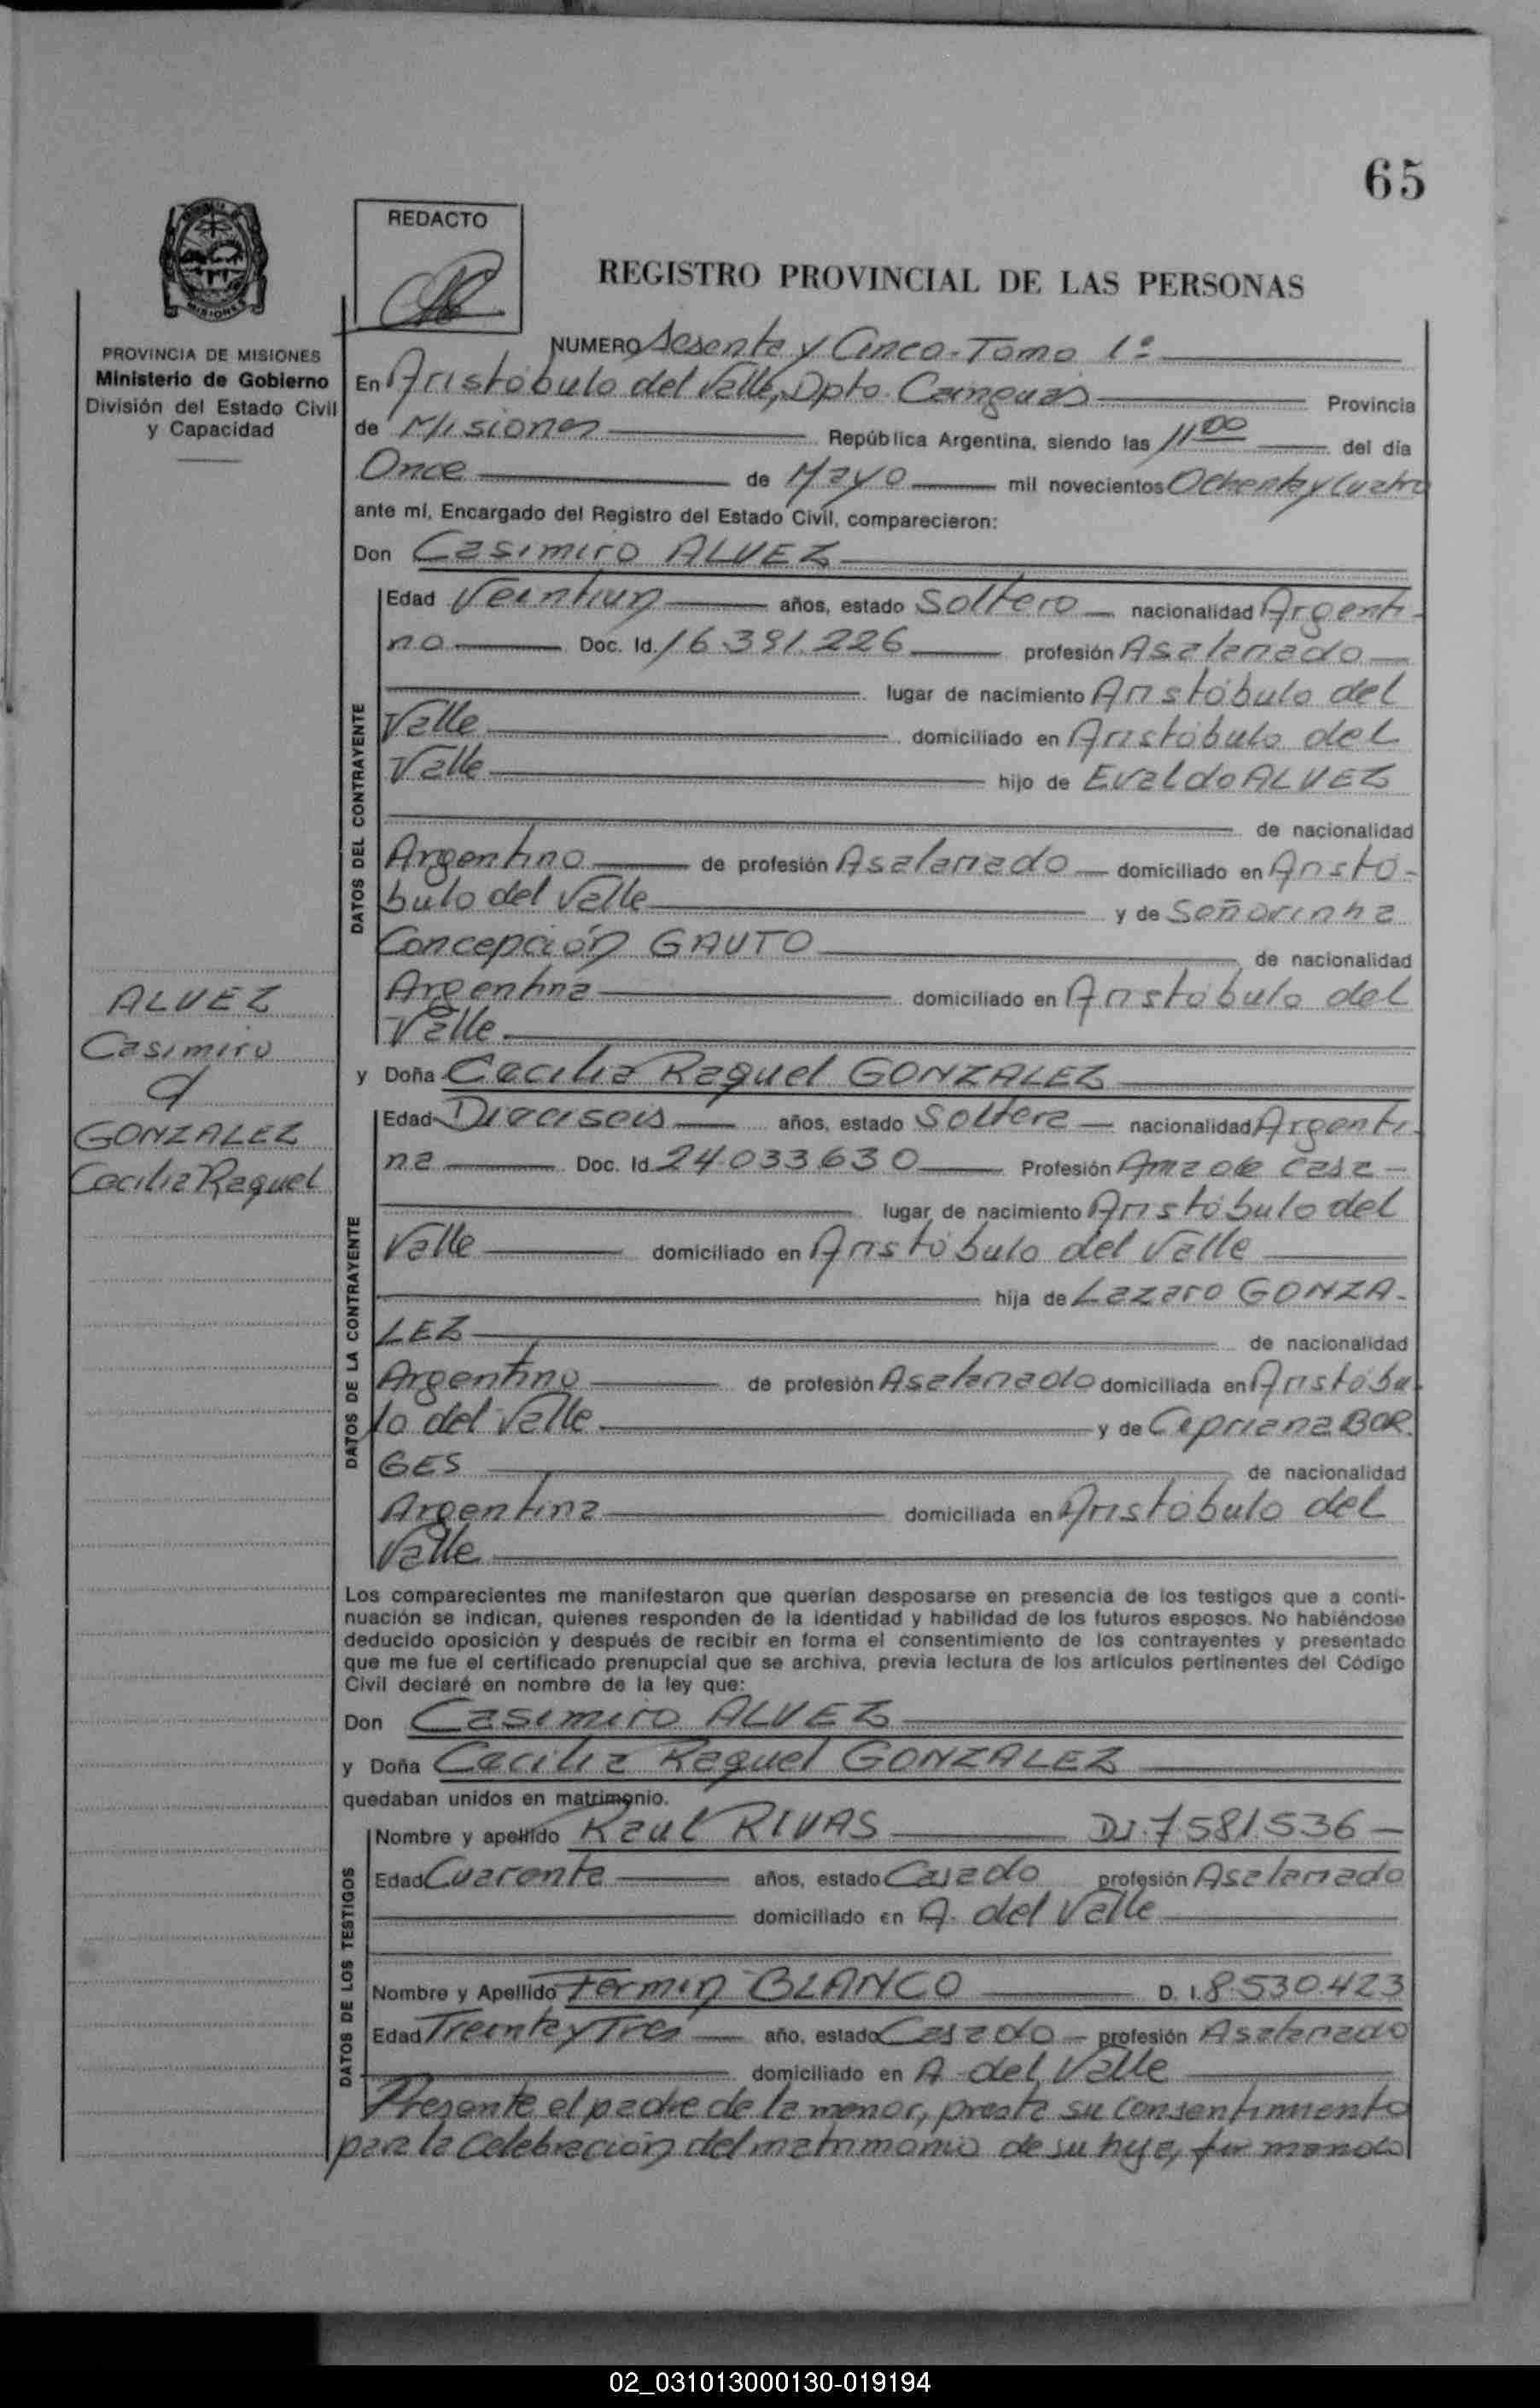 65
REDACTO
REGISTRO PROVINCIAL DE LAS PERSONAS
MISIONES
PROVINCIA DE MISIONES
Ministerio de Gobierno
División del Estado Civil
y Capacidad
NUMERO Sesenta y Cinco - Tomo 1º
En Aristóbulo del Valle, Dpto. Cainguás Provincia
de Misiones República Argentina, siendo las 11 00 del día
Once de Mayo mil novecientos Ochenta y Cuatro
ante mí, Encargado del Registro del Estado Civil, comparecieron:
Don Casimiro ALVEZ
DATOS DEL CONTRAYENTE
Edad Veintiun años, estado Soltero nacionalidad Argenti-
no Doc. Id. 16.391.226 profesión Asalariado
lugar de nacimiento Aristóbulo del
Valle domiciliado en Aristóbulo del
Valle hijo de Evaldo ALVEZ
de nacionalidad
Argentino de profesión Asalariado domiciliado en Aristó-
bulo del Valle y de Señorinha
Concepción GAUTO de nacionalidad
Argentina domiciliado en Aristóbulo del
Valle
ALVEZ
Casimiro
c/
GONZALEZ
Cecilia Raquel
y Doña Cecilia Raquel GONZALEZ
DATOS DE LA CONTRAYENTE
Edad Dieciseis años, estado Soltera nacionalidad Argenti-
na Doc. Id 24.033.630 Profesión Ama de casa
lugar de nacimiento Aristóbulo del
Valle domiciliado en Aristóbulo del Valle
hija de Lazaro GONZA-
LEZ de nacionalidad
Argentino de profesión Asalariado domiciliada en Aristóbu-
lo del Valle y de Cipriana BOR-
GES de nacionalidad
Argentina domiciliada en Aristóbulo del
Valle
Los comparecientes me manifestaron que querían desposarse en presencia de los testigos que a conti-
nuación se indican, quienes responden de la identidad y habilidad de los futuros esposos. No habiéndose
deducido oposición y después de recibir en forma el consentimiento de los contrayentes y presentado
que me fue el certificado prenupcial que se archiva, previa lectura de los artículos pertinentes del Código
Civil declaré en nombre de la ley que:
Don Casimiro ALVEZ
y Doña Cecilia Raquel GONZALEZ
quedaban unidos en matrimonio.
DATOS DE LOS TESTIGOS
Nombre y apellido Raul RIVAS DI. 7.581.536
Edad Cuarenta años, estado Casado profesión Asalariado
domiciliado en A. del Valle
Nombre y Apellido Fermin BLANCO D. I. 8.530.423
Edad Treinta y Tres año, estado Casado profesión Asalariado
domiciliado en A. del Valle
Presente el padre de la menor, presta su consentimiento
para la celebración del matrimonio de su hija, firmando
02_031013000130-019194